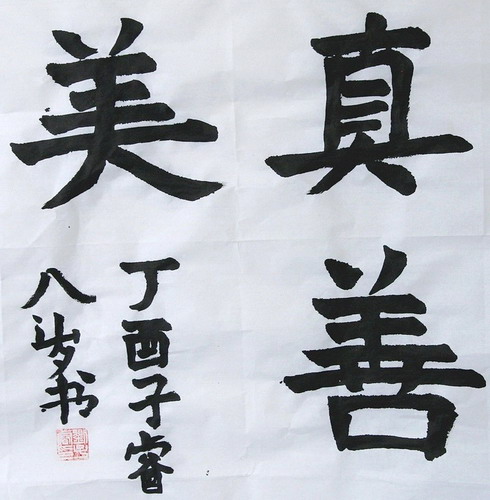 真善
美
丁酉子睿
八岁书